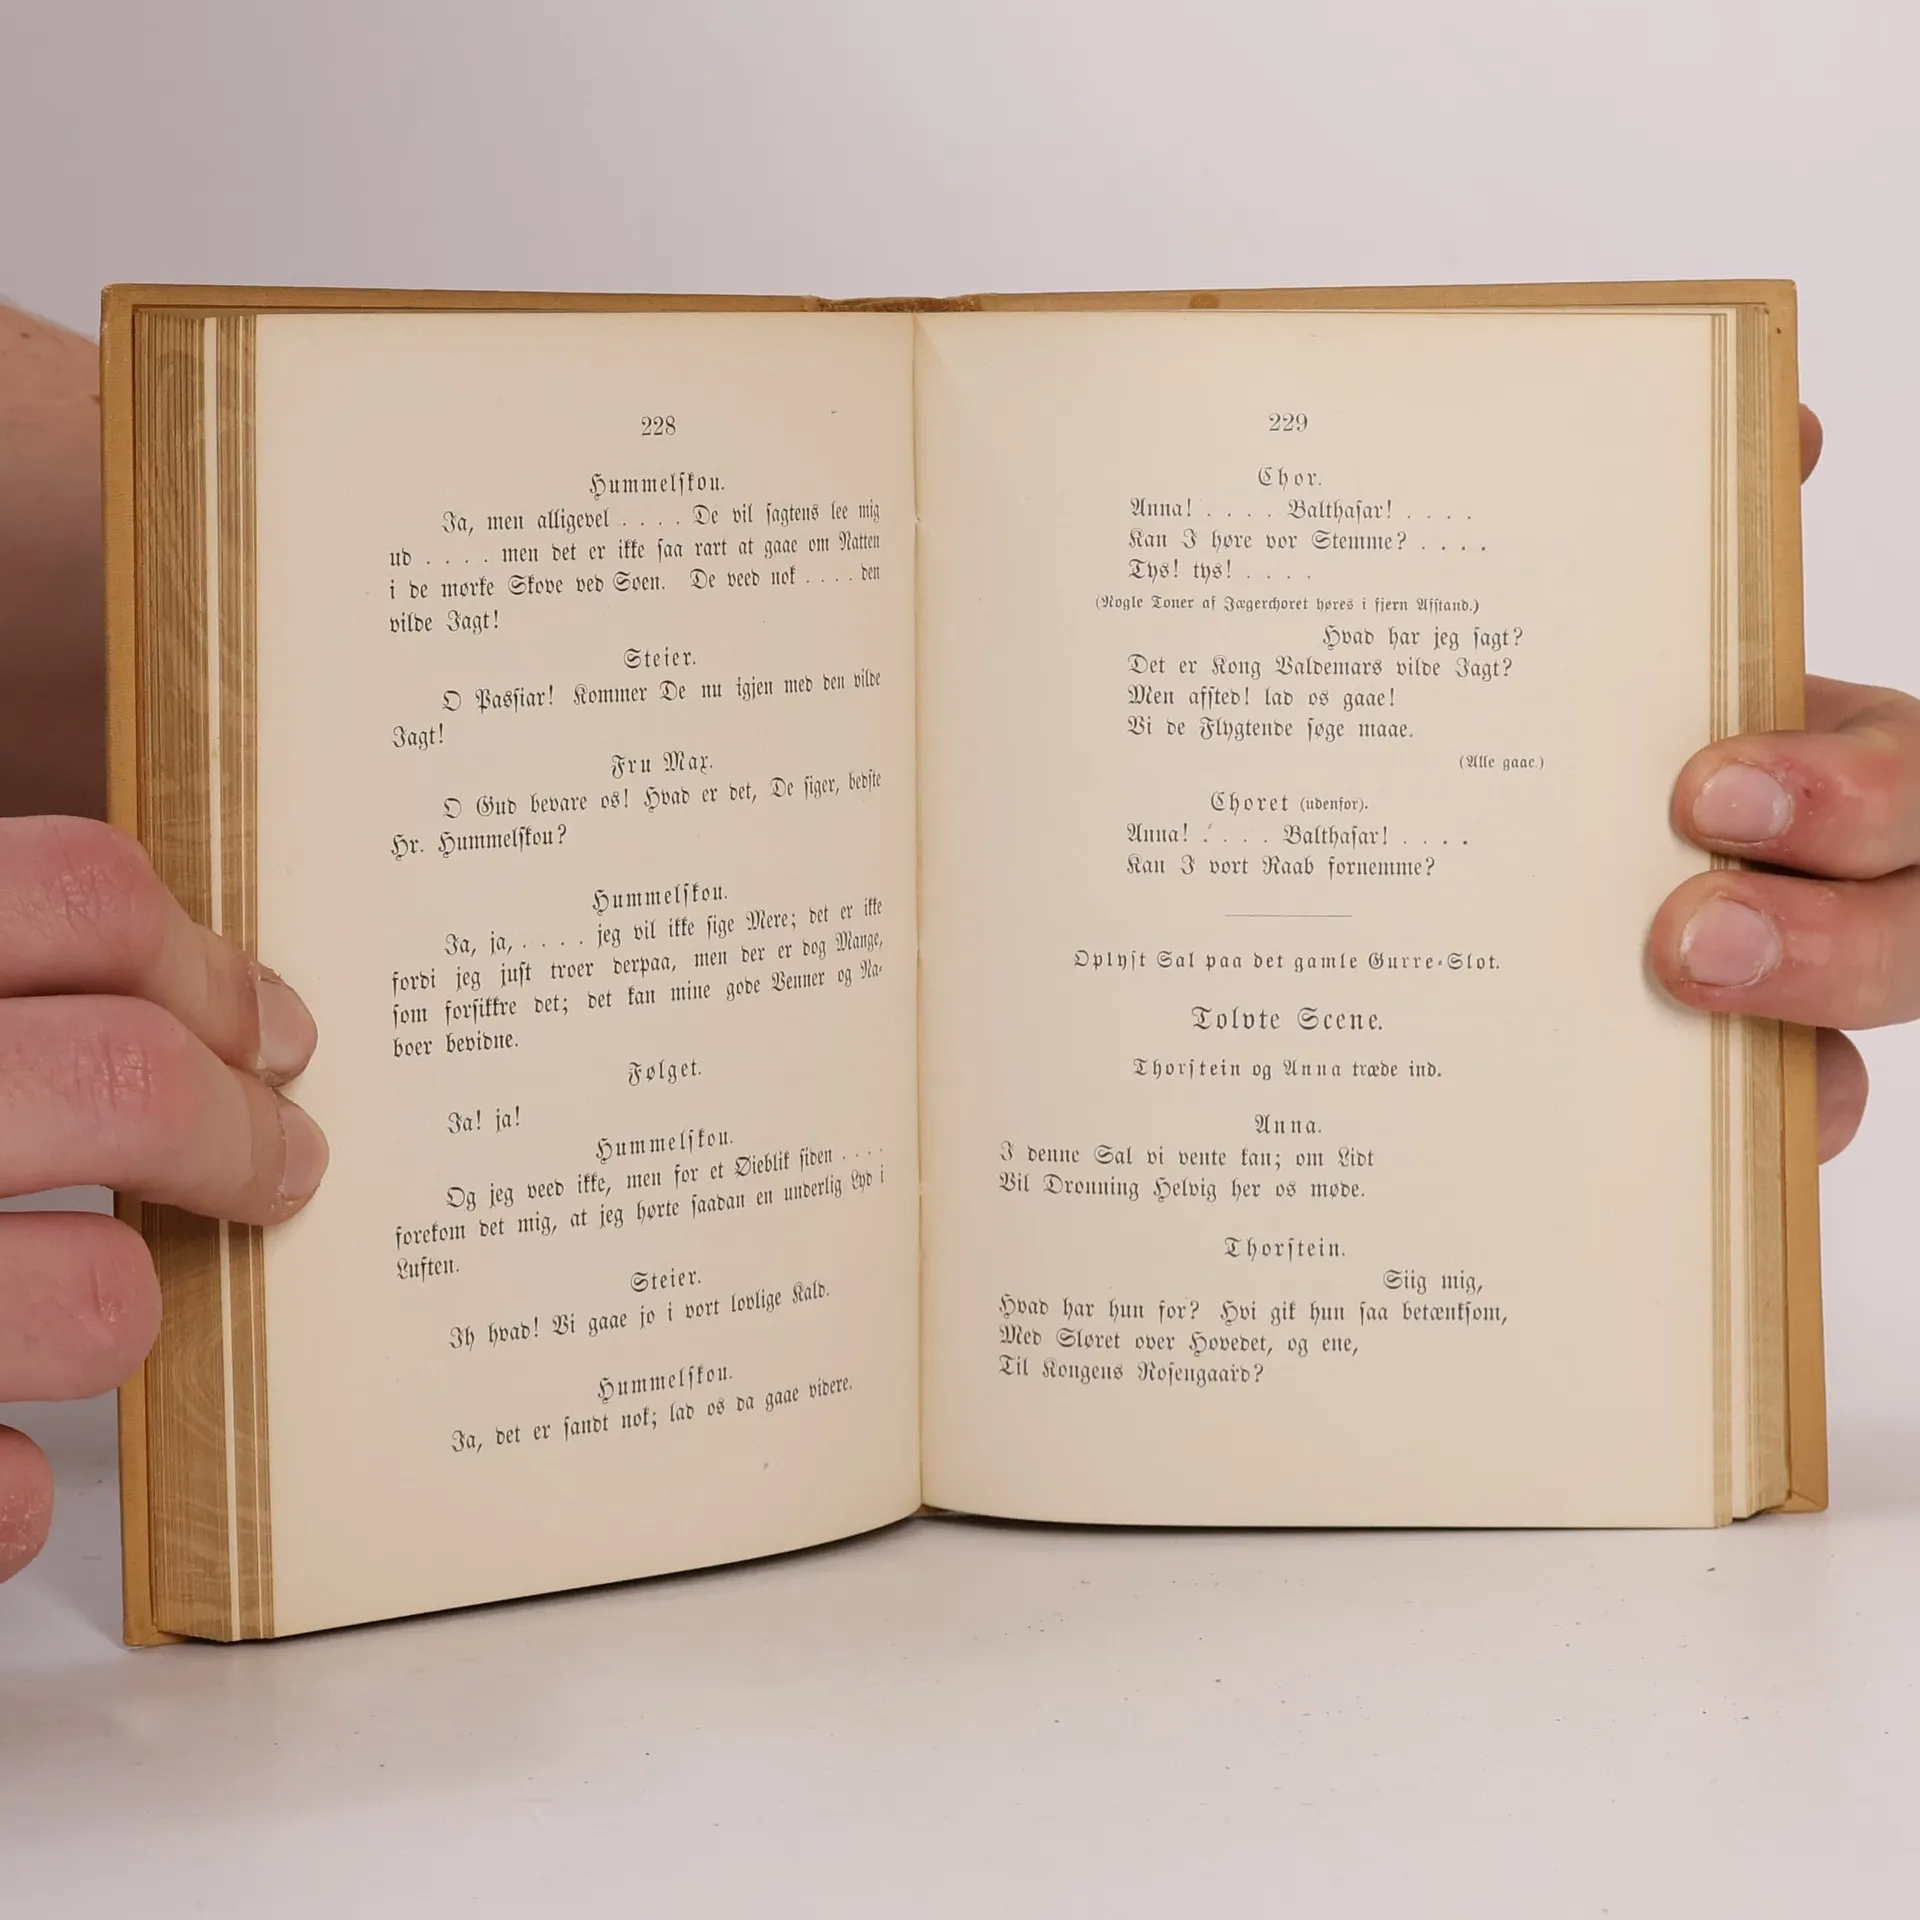 228
Hummelſkou.
Ja, men alligevel . . . . De vil ſagtens lee mig
ud . . . . men det er ikke ſaa rart at gaae om Natten
i de mørke Skove ved Søen. De veed nok . . . . den
vilde Jagt!
Steier.
O Pasſiar! Kommer De nu igjen med den vilde
Jagt!
Fru Max.
O Gud bevare os! Hvad er det, De ſiger, bedſte
Hr. Hummelſkou?
Hummelſkou.
Ja, ja, . . . . jeg vil ikke ſige Mere; det er ikke
fordi jeg juſt troer derpaa, men der er dog Mange,
ſom forſikkre det; det kan mine gode Venner og Na-
boer bevidne.
Følget.
Ja! ja!
Hummelſkou.
Og jeg veed ikke, men for et Øieblik ſiden . . . .
forekom det mig, at jeg hørte ſaadan en underlig Lyd i
Luften.
Steier.
Ih hvad! Vi gaae jo i vort lovlige Kald.
Hummelſkou.
Ja, det er ſandt nok; lad os da gaae videre.
229
Chor.
Anna! . . . . Balthaſar! . . . .
Kan I høre vor Stemme? . . . .
Tys! tys! . . . .
(Nogle Toner af Jægerchoret høres i fjern Afſtand.)
Hvad har jeg ſagt?
Det er Kong Valdemars vilde Jagt?
Men afſted! lad os gaae!
Vi de Flygtende ſøge maae.
(Alle gaae.)
Choret (udenfor).
Anna! . . . . Balthaſar! . . . .
Kan I vort Raab fornemme?
Oplyſt Sal paa det gamle Gurre-Slot.
Tolvte Scene.
Thorſtein og Anna træde ind.
Anna.
I denne Sal vi vente kan; om Lidt
Vil Dronning Helvig her os møde.
Thorſtein.
Siig mig,
Hvad har hun for? Hvi gik hun ſaa betænkſom,
Med Sløret over Hovedet, og ene,
Til Kongens Roſengaard?